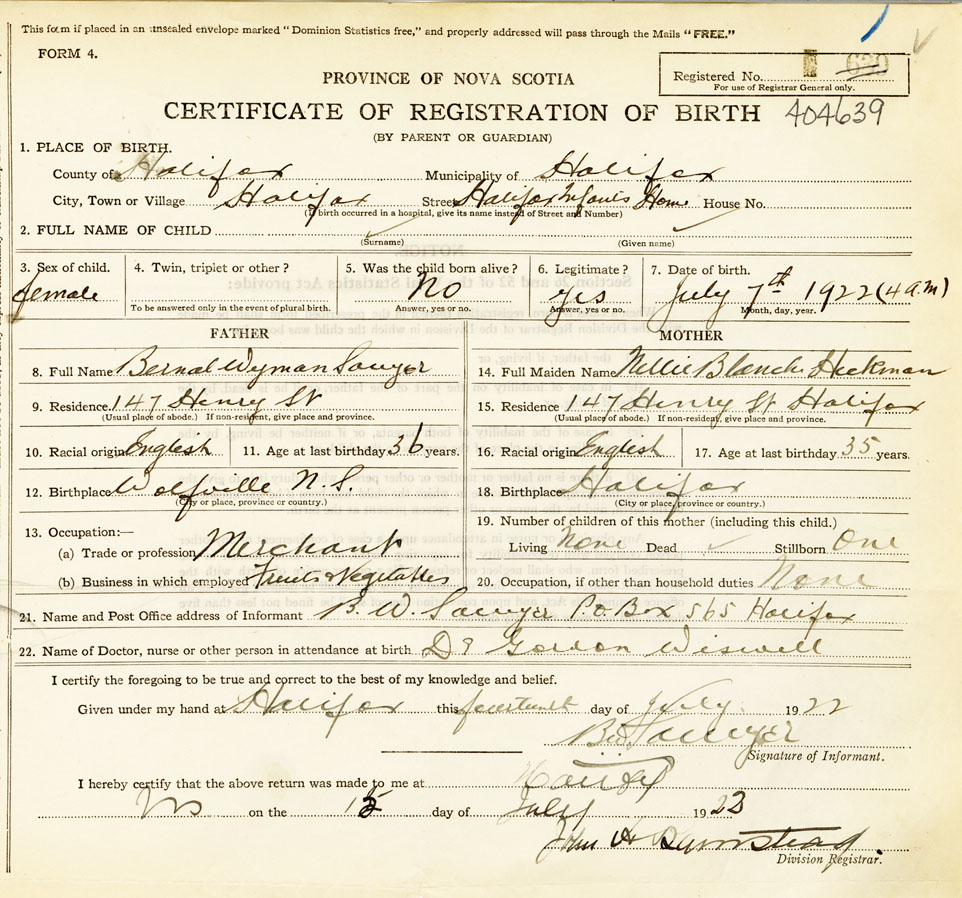 This form if placed in an unsealed envelope marked "Dominion Statistics free," and properly addressed will pass through the Mails "FREE."
FORM 4.
PROVINCE OF NOVA SCOTIA
Registered No. 630
For use of Registrar General only.
CERTIFICATE OF REGISTRATION OF BIRTH 404639
(BY PARENT OR GUARDIAN)
1. PLACE OF BIRTH.
County of Halifax Municipality of Halifax
City, Town or Village Halifax Street Halifax Infants Home House No.
(If birth occurred in a hospital, give its name instead of Street and Number)
2. FULL NAME OF CHILD
(Surname) (Given name)
3. Sex of child. 4. Twin, triplet or other? 5. Was the child born alive? 6. Legitimate? 7. Date of birth.
female No yes July 7th 1922 (4 a.m)
To be answered only in the event of plural birth. Answer, yes or no. Answer, yes or no. Month, day, year.
FATHER MOTHER
8. Full Name Bernal Wyman Sawyer 14. Full Maiden Name Nellie Blanche Heckman
9. Residence. 147 Henry St 15. Residence 147 Henry St Halifax
(Usual place of abode.) If non-resident, give place and province. (Usual place of abode.) If non-resident, give place and province.
10. Racial origin English 11. Age at last birthday. 36 years. 16. Racial origin English 17. Age at last birthday. 35 years.
12. Birthplace Wolfville N.S. 18. Birthplace Halifax
(City or place, province or country.) (City or place, province or country.)
13. Occupation:— 19. Number of children of this mother (including this child.)
(a) Trade or profession Merchant Living None Dead Stillborn One
(b) Business in which employed Fruits & Vegetables 20. Occupation, if other than household duties None
21. Name and Post Office address of Informant B. W. Sawyer P.O. Box 565 Halifax
22. Name of Doctor, nurse or other person in attendance at birth Dr Gordon Wiswell
I certify the foregoing to be true and correct to the best of my knowledge and belief.
Given under my hand at Halifax this fourteenth day of July 1922
B.W. Sawyer
Signature of Informant.
I hereby certify that the above return was made to me at Halifax
NS on the 15 day of July 1923
John A
Division Registrar.